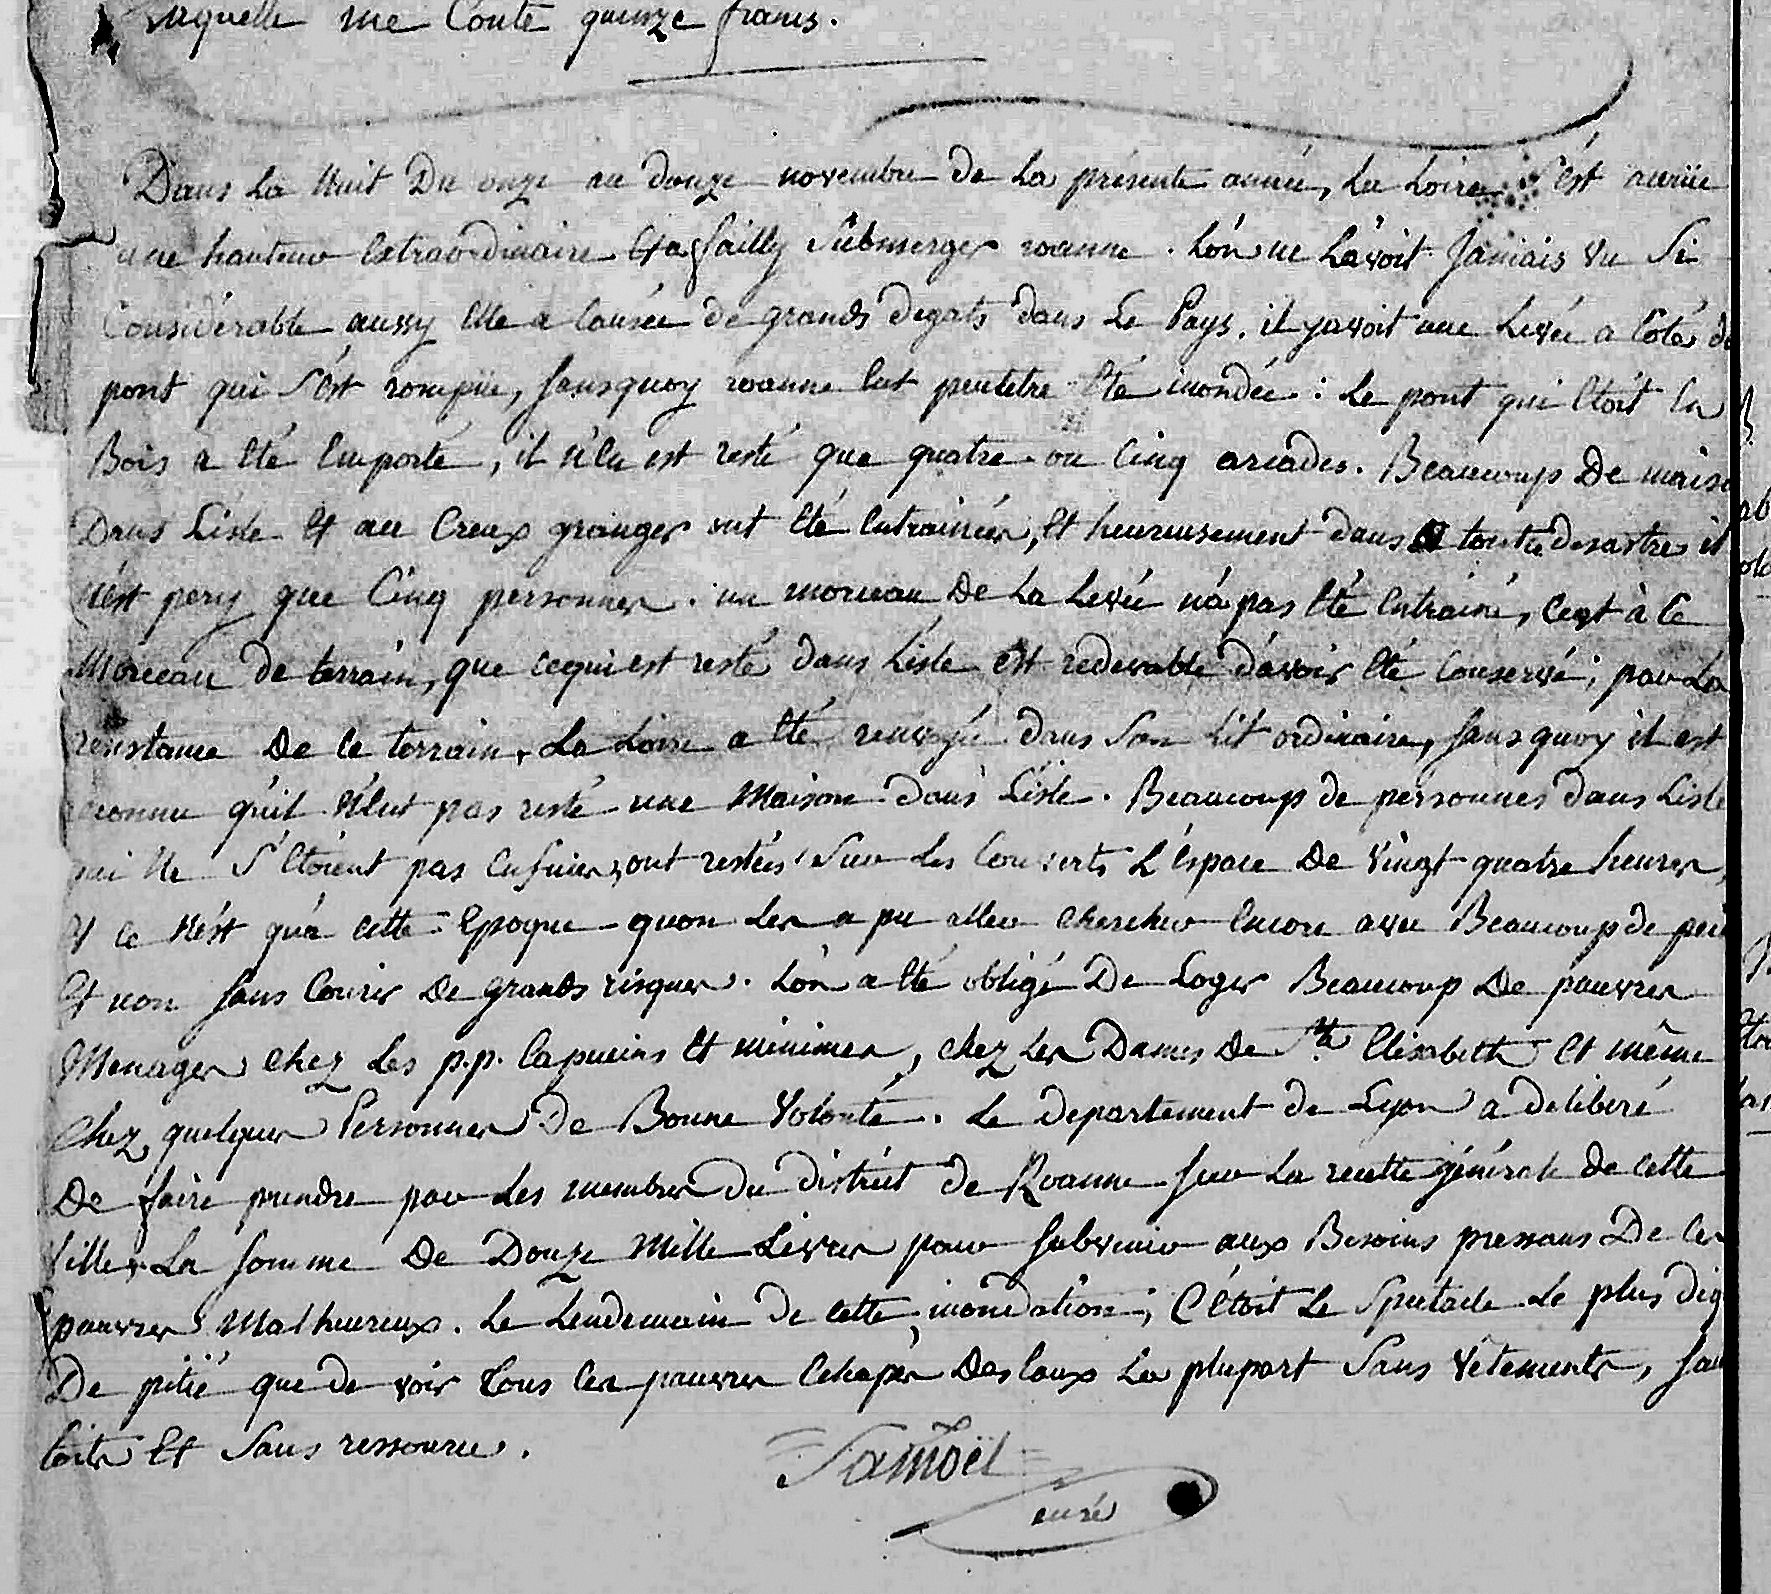 laquelle me Coute quinze francs.
Dans La Nuit Du onze au douze novembre de La présente année, La Loire s'ést accrüe
une hauteur Extraordinaire Et a failly submerger roanne. L'on ne L'avoit Jamais vu Si
Considérable aussy Elle a Causée de grands degats dans Le Pays. il y avoit une Levée a Coté du
pont qui s'ést rompüe, sans quoy roanne Eut peutetre Eté inondée : Le pont qui Etoit En
Bois a Eté Emporté, il n'En est resté que quatre ou Cinq arcades. Beaucoup De mais
Dans L'isle Et au Creux granger ont Eté Entrainées, Et heureusement dans tout ce desastre il
n'ést pery que Cinq personnes. un morceau De La Levée n'a pas Eté Entrainé, C'est à Ce
Morceau de terrain, que ce qui est resté dans L'isle est redevable d'avoir Eté Conservé; par La
resistance De Ce terrain, La Loire a Eté renvoyée dans Son Lit ordinaire, sans quoy il est
reconnu qu'il n'Eut pas resté une Maison dans L'isle. Beaucoup de personnes dans L'isle
qui Ne S'Etoient pas Enfuies, ont restées Sur Les Couverts L'éspace De Vingt quatre heures,
Et Ce N'ést qu'a cette Epoque qu'on Les a pu aller chercher Encore avec Beaucoup de pei
Et non sans Courir De grands risques. L'on a Eté obligé De Loger Beaucoup De pauvres
Menages chez Les p.p. Capucins Et minimes, chez Les Dames De Ste Elisabeth Et même
Chez quelques Personnes De Bonne Volonté. Le departement de Lyon a deliberé
De faire prendre par Les membres Du district de Roanne sur La recette générale de Cette
Ville, La somme De Douze Mille Livres pour subvenir aux Besoins pressans De Ces
pauvres Malheureux. Le Lendemain de cette inondation; C'étoit Le Spectacle Le plus dig
De pitié que de voir Tous Ces pauvres Echapés Des Eaux La plupart Sans Vêtements, san
toits Et Sans ressource.
Samoël
curé